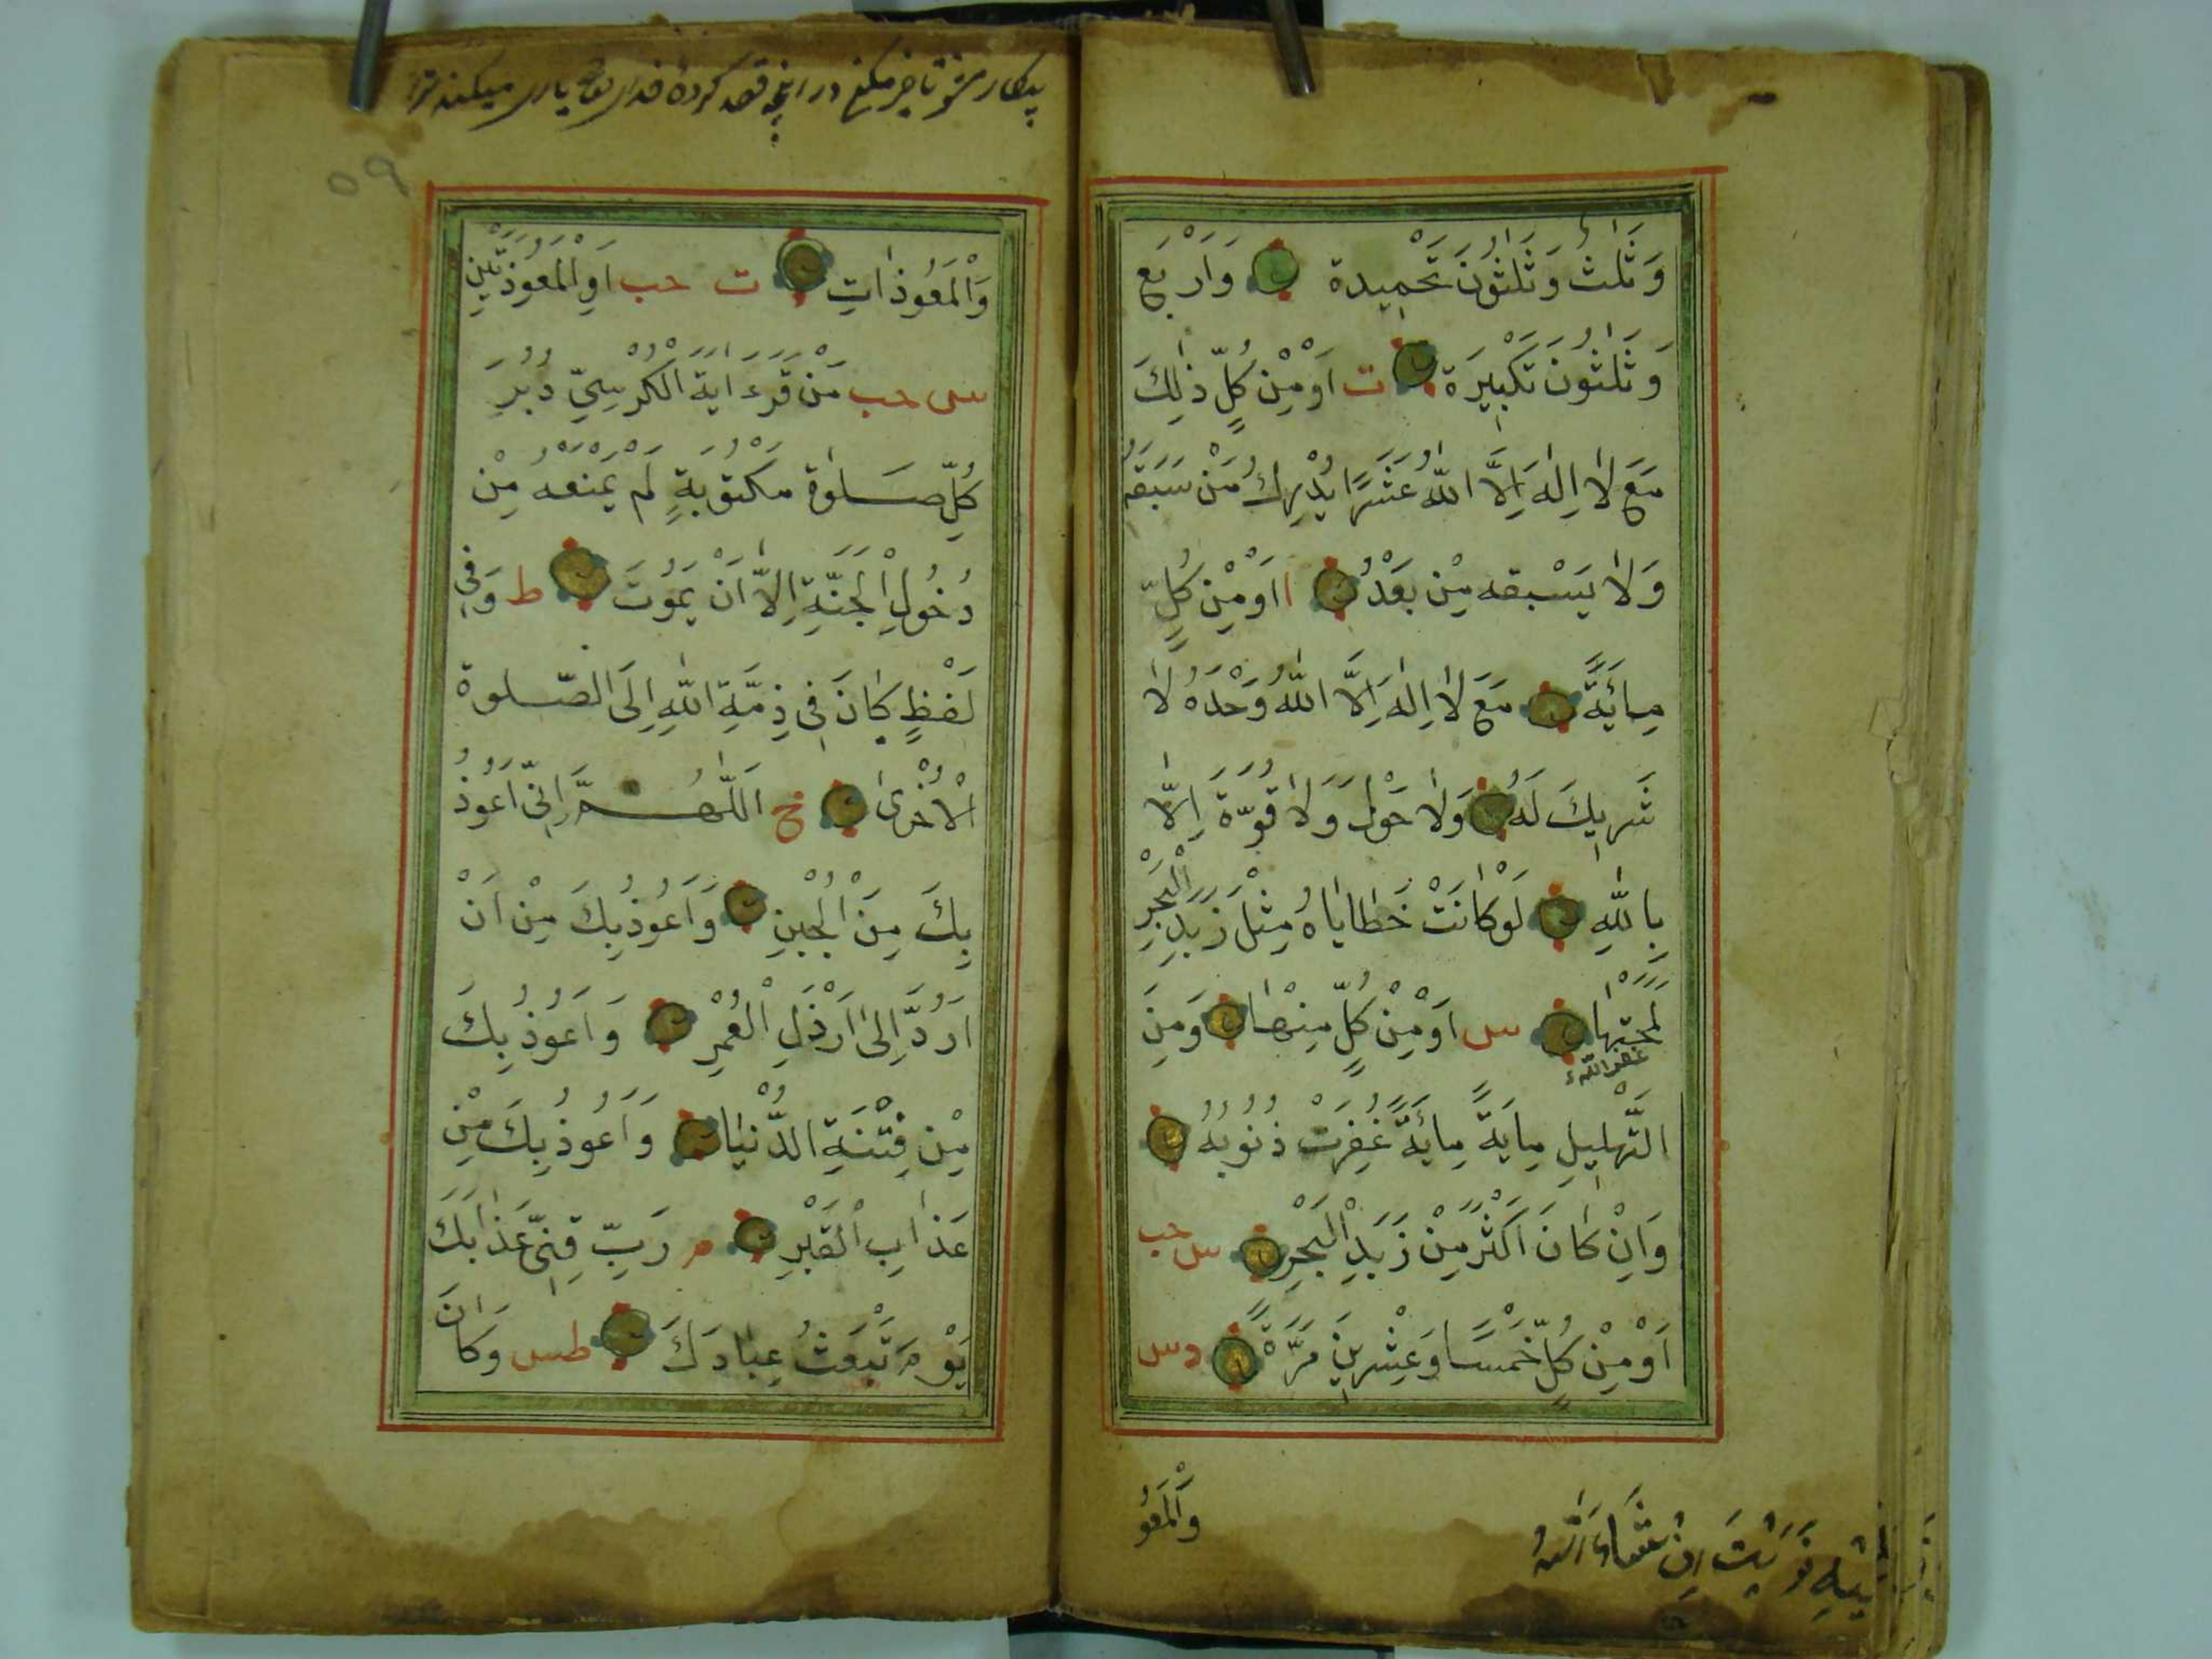 وَثَلٰثٌ وَثَلٰثُونَ تَحْمِيدة وَاَرْبَع
وَثَلٰثُونَ تَكْبِيْرَة ت اَوْ مِنْ كُلِّ ذٰلِكَ
مَعَ لَا اِلٰهَ اِلَّا اللّٰهُ عَشَرًا يُدْرِكُ مَنْ سَبَقَهُ
وَلَا يَسْبقه مِنْ بَعْدُ ا اَوْ مِنْ كُلٍّ
مِائَةً مَعَ لَا اِلٰهَ اِلَّا اللّٰهُ وَحْدَهُ لَا
شَرِيكَ لَهُ وَلَا حَوْلَ وَلَا قُوَّةَ اِلَّا
بِاللّٰهِ لَوْ كَانَتْ خَطَايَاهُ مِثْلَ زَبَدِ الْبَحْرِ
لَمَحَتْهَا س اَوْ مِنْ كُلٍّ مِنْهَا وَمِنَ
التَّهْلِيلِ مِايَةً مِائَةً غُفِرَتْ ذُنُوبُهُ
وَاِنْ كَانَ اَكْثَرَ مِنْ زَبَدِ الْبَحْرِ س حب
اَوْ مِنْ كُلٍّ خَمْسًا وَعِشْرِينَ مَرَّةً س
وَالْمَعُو
اِنْ شَاءَ اللّٰهُ
۵۹
وَالْمَعُوذَاتِ ت حب اَوِ الْمَعُوِذَتَيْنِ
س حب مَنْ قَرَءَ ايَةَ الْكُرْسِيِّ دُبُرَ
كُلِّ صَلٰوة مَكْتُوبَةٍ لَمْ يَمْنَعْهُ مِنْ
دُخُولِ الْجَنَّةِ اِلَّا اَنْ يَمُوْتَ ط وَفِي
لَفْظٍ كَانَ فِى ذِمَّةِ اللّٰهِ اِلَى الصَّلوة
الْاُخْرٰى خ اَللّٰهُمَّ اِنِّى اَعُوذُ
بِكَ مِنَ الْجُبْنِ وَاَعُوذُ بِكَ مِنْ اَنْ
اُرَدَّ اِلٰى اَرْذَلِ الْعُمْرِ وَاَعُوذُ بِكَ
مِنْ فِتْنَةِ الدُّنْيَا وَاَعُوذُ بِكَ مِنْ
عَذَابِ الْقَبْرِ م رَبِّ قِنِى عَذَابَكَ
يَوْمَ تَبْعَثُ عِبَادَكَ طس وَكَانَ